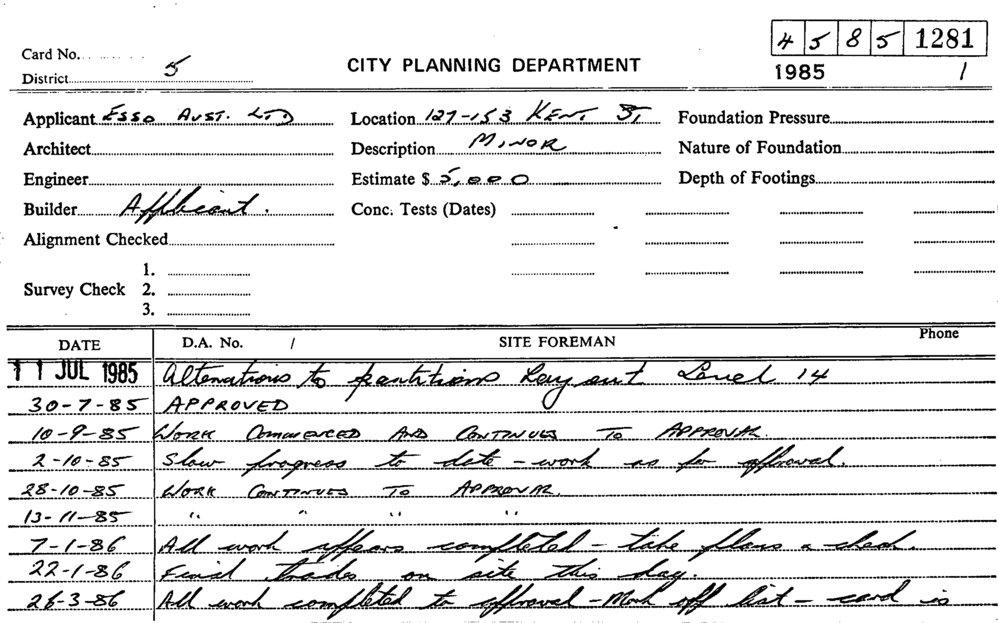 4 5 8 5 1281
Card No.
District 5
CITY PLANNING DEPARTMENT
1985 /
Applicant ESSO AUST. LTD
Location 127-153 KENT ST.
Foundation Pressure
Architect
Description MINOR
Nature of Foundation
Engineer
Estimate $ 5,000
Depth of Footings
Builder Applicant.
Conc. Tests (Dates)
Alignment Checked
1.
Survey Check 2.
3.
DATE D.A. No. / SITE FOREMAN Phone
11 JUL 1985 Alterations to partitions Layout Level 14
30-7-85 APPROVED
10-9-85 WORK COMMENCED AND CONTINUES TO APPROVAL.
2-10-85 Slow progress to date - work as per approval.
28-10-85 WORK CONTINUES TO APPROVAL.
13-11-85 " " " "
7-1-86 All work appears completed - take plans & check.
22-1-86 Final trades on site this day.
26-3-86 All work completed to approval - Mark off list - card is